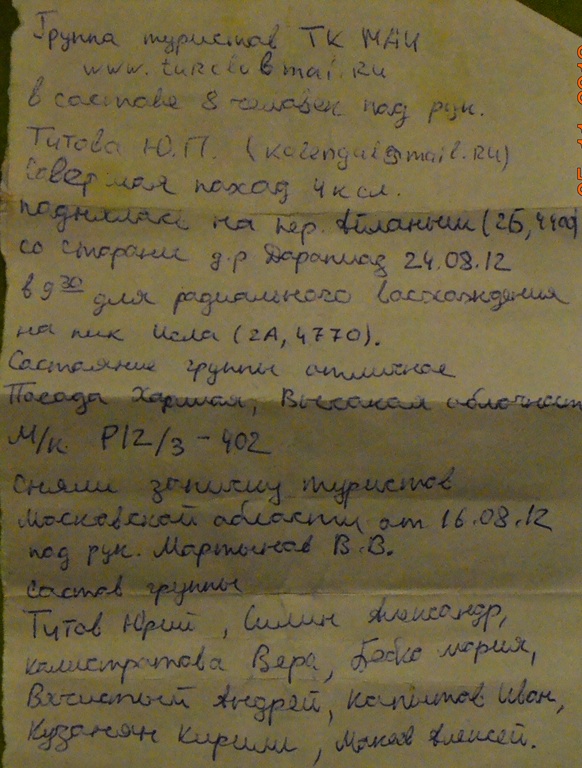 Группа туристов ТК МАИ
www.turclubmai.ru
в составе 8 человек под рук.
Титова Ю.П. (kalengal@mail.ru)
совершая поход 4 к сл.
поднялась на пер. Айланыш (2Б, 4400)
со стороны д.р Дарапиад 24.08.12
в 9 30 для радиального восхождения
на пик Исла (2А, 4770).
Состояние группы отличное
Погода Хорошая, Высокая облачность
М/к. Р12/3 - 402
Сняли записку туристов
Московской области от 16.08.12
под рук. Мартынов В.В.
состав группы
Титов Юрий, Силин Александр,
Калистратова Вера, Бобко Мария,
Андрей, Капитов Иван,
Кузанян Кирилл, Алексей.